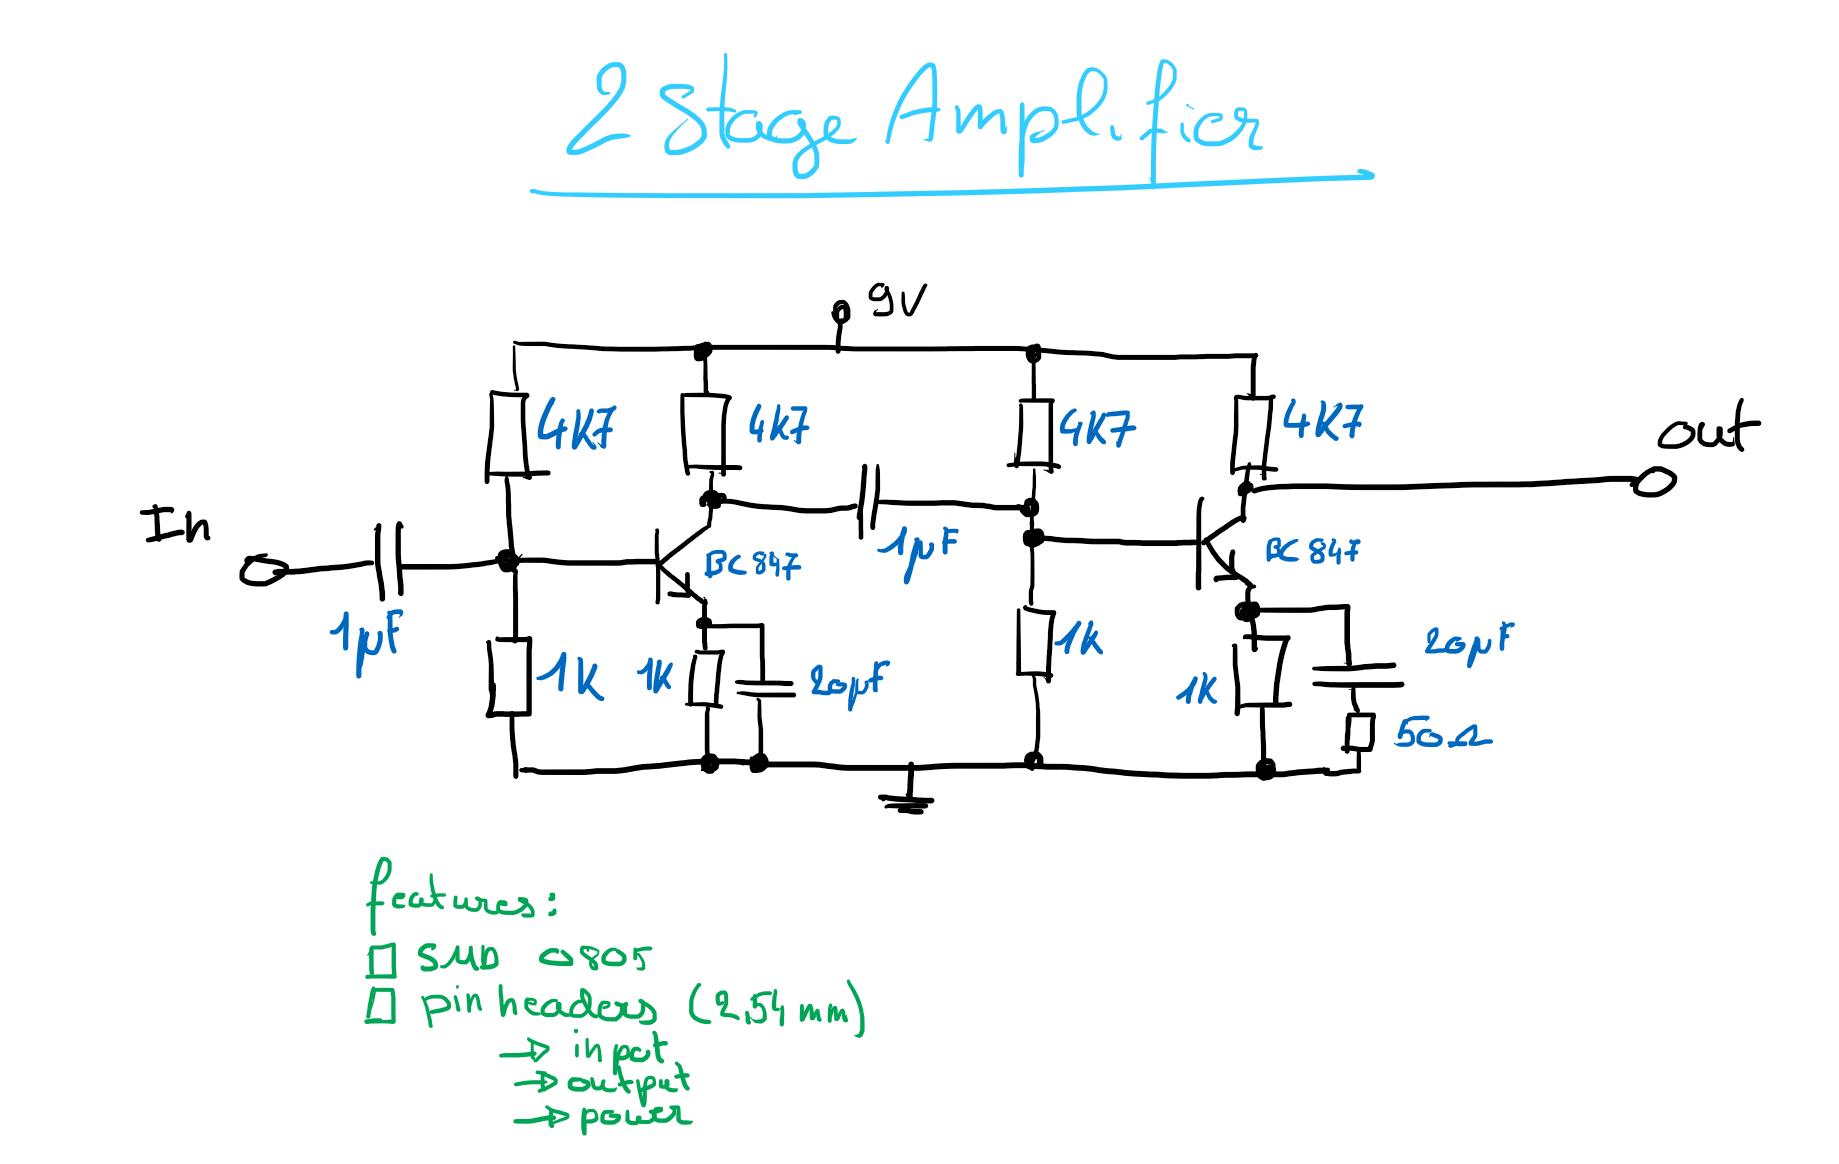 2 Stage Amplifier
9V
4K7
4K7
4K7
4K7
out
In
BC847
1µF
BC847
1µF
1K
1K
20µF
1K
1K
20µF
50Ω
features:
SMD 0805
pin headers (2.54 mm)
→ input
→ output
→ power